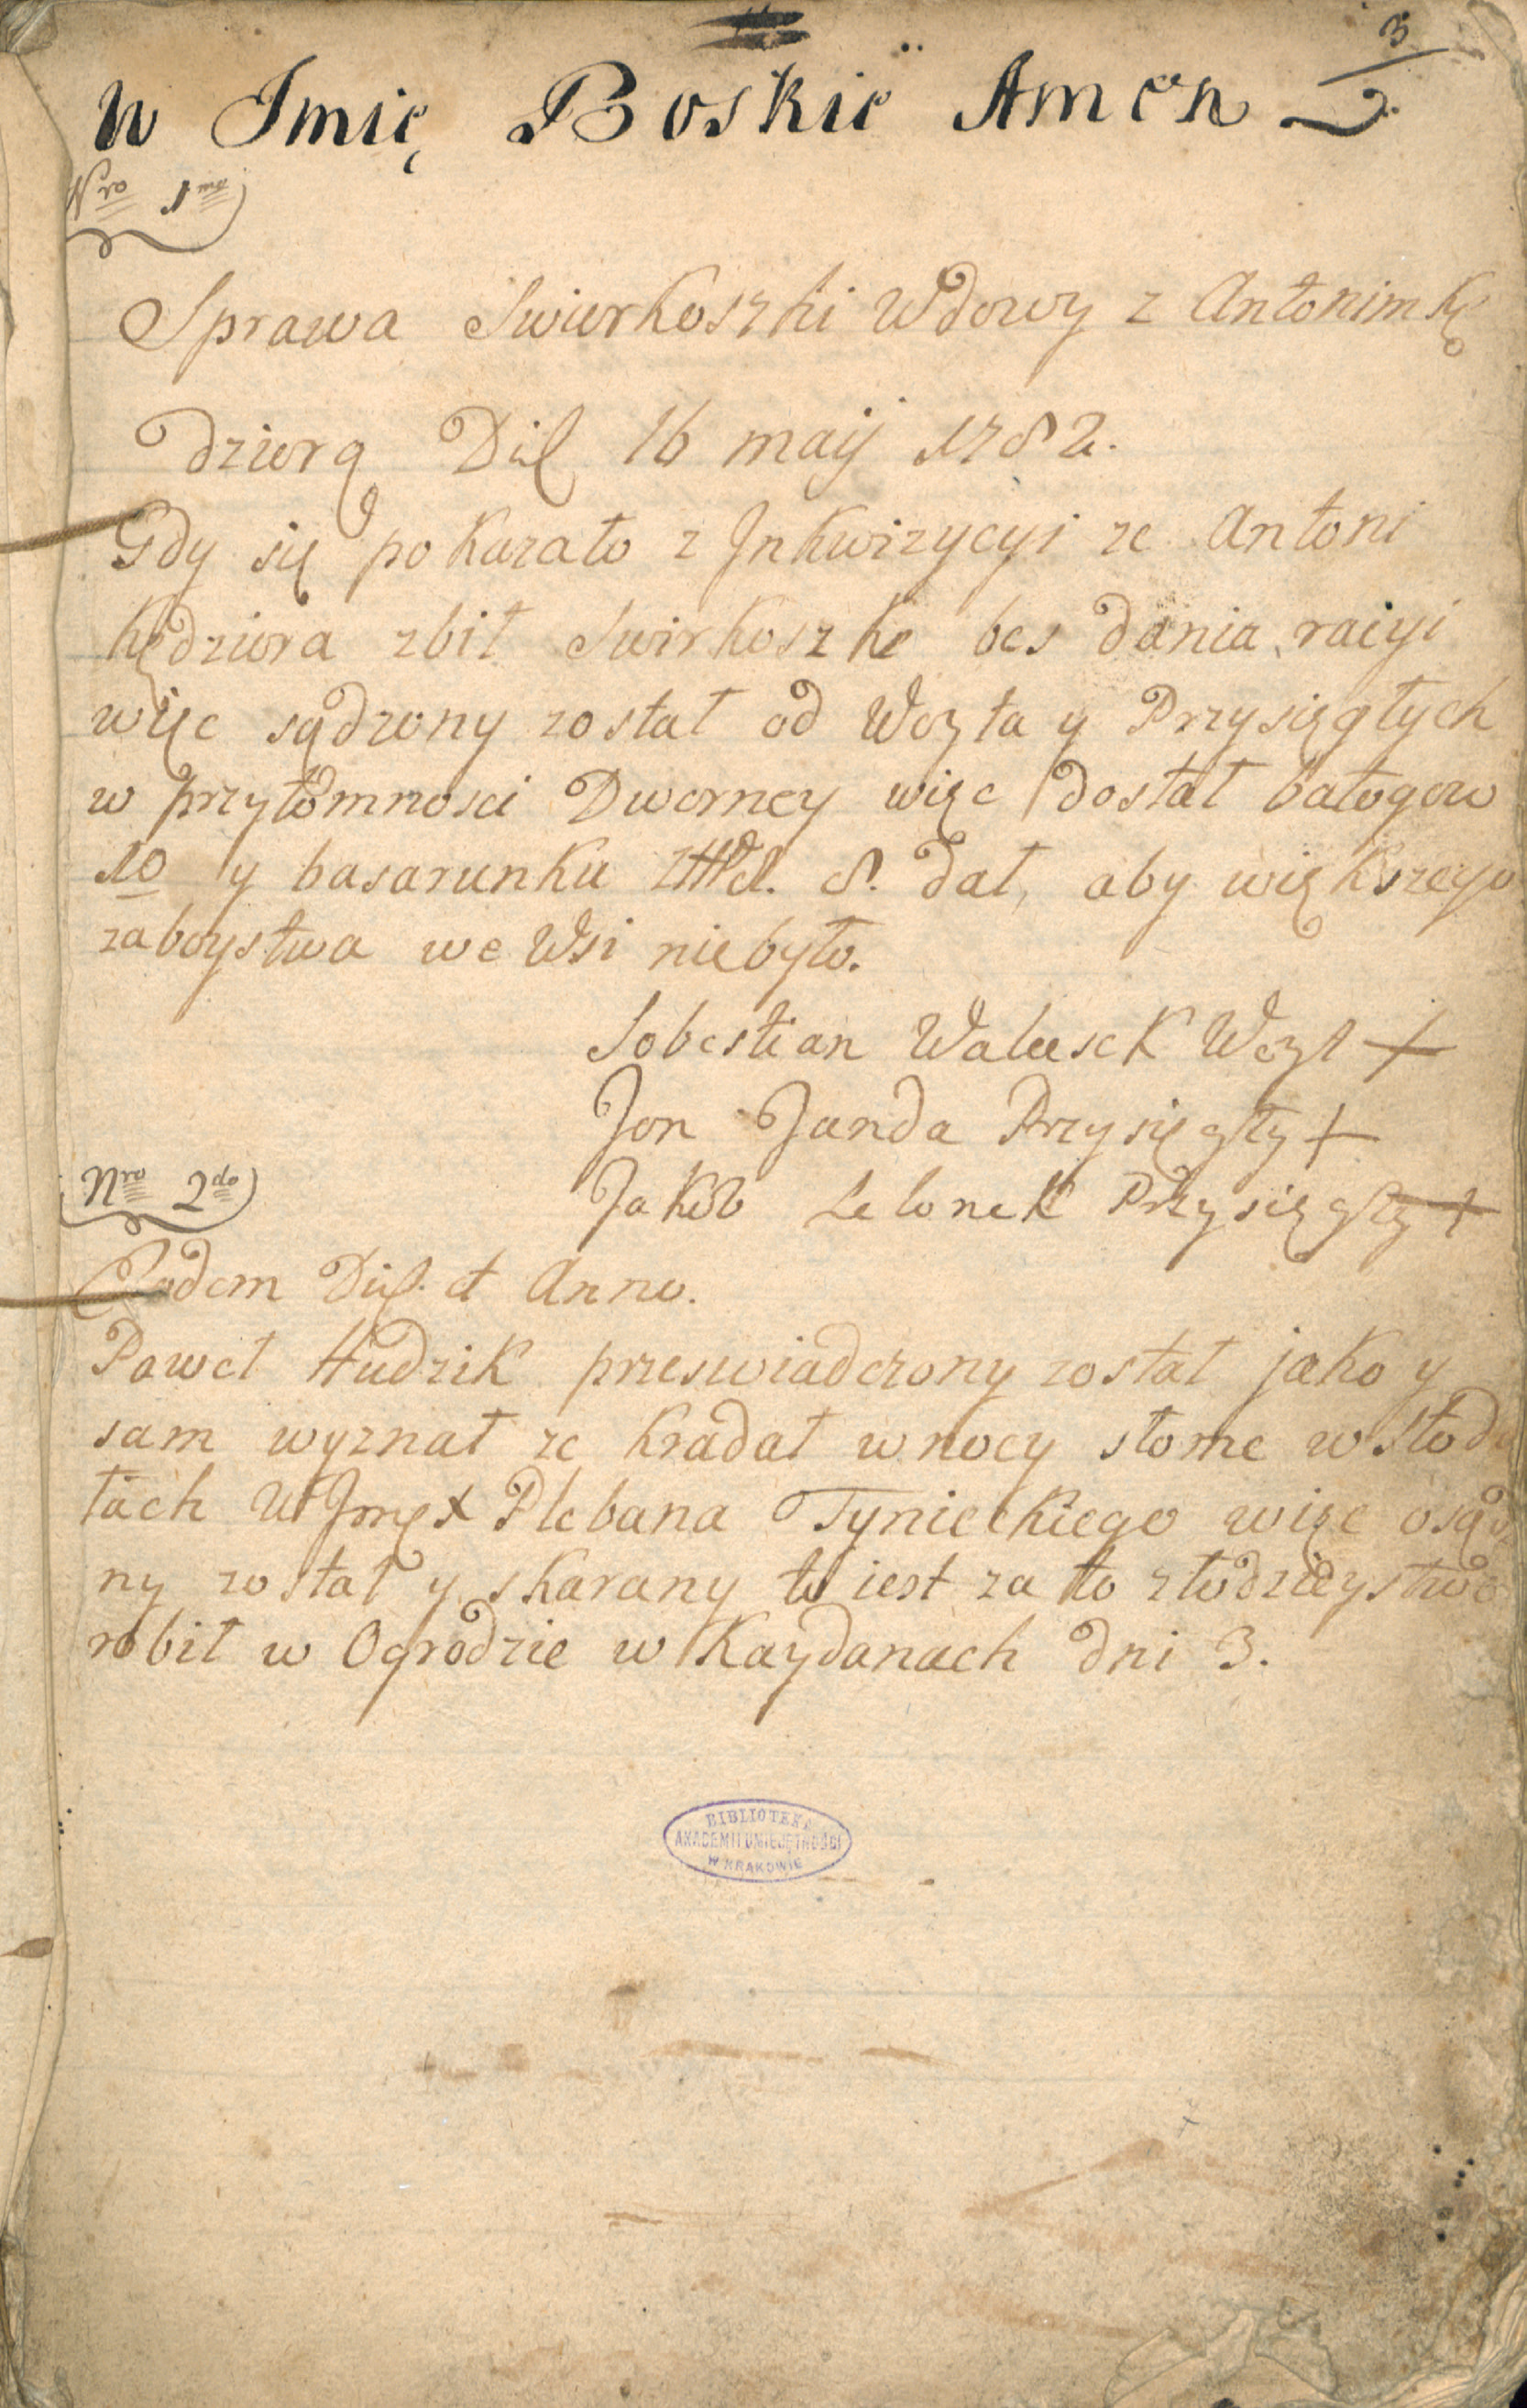 3
W Imię Boskie Amen
Nro 1mo
Sprawa Swierkoszki Wdowy z Antonim Kę
dziorą Die 16 maij 1782.
Gdy się pokazało z Jnkwizycyi ze Antoni
Kędziora zbił Swirkoszke bes dania racyi
więc sądzony został od Woyta y Przysięgłych
w przytomnosci Dworney więc dostał batogow
10 y basarunku 8. dał, aby większego
zaboystwa we Wsi niebyło.
Sobestian Walusek Woyt +
Jon Janda Przysięgły +
Nro 2do
Jakob Lelonek Przysięgły +
Eadem Die et Anno.
Paweł Hudzik przeswiadczony został jako y
sam wyznał ze kradał w nocy słome w stodo
łach Plebana Tynieckiego więc osądzo
ny został y skarany to iest za to złodzieystwo
robił w Ogrodzie w Kaydanach dni 3.
BIBLIOTEKA
AKADEMII UMIEJĘTNOŚCI
W KRAKOWIE